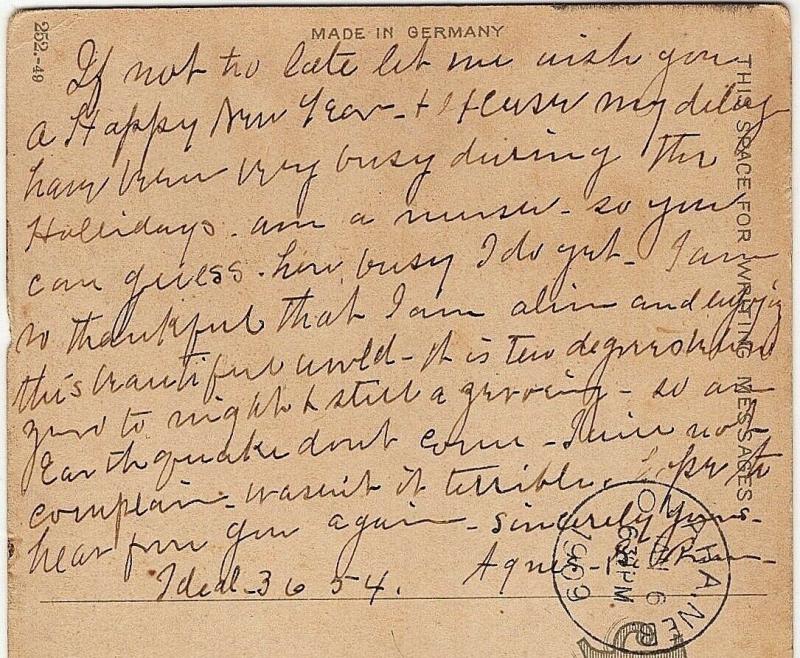 252.-49
MADE IN GERMANY
THIS SPACE FOR WRITING MESSAGES
If not to late let me wish you
a Happy New Year - & Excuse my delay
have been very busy during the
Hollidays. am a nurse - so you
can guess - how busy I do get - I am
so thankful that I am alive and enjoy
this beautiful world - It is two degrees
zero to night & still a growing - so an
Earthquake dont come - I will not
complain - wasn't it terrible. Hope to
hear from you again - sincerely yours -
Ideal - 3654. Agnes
OMAHA, NEB
6 30 PM
1909